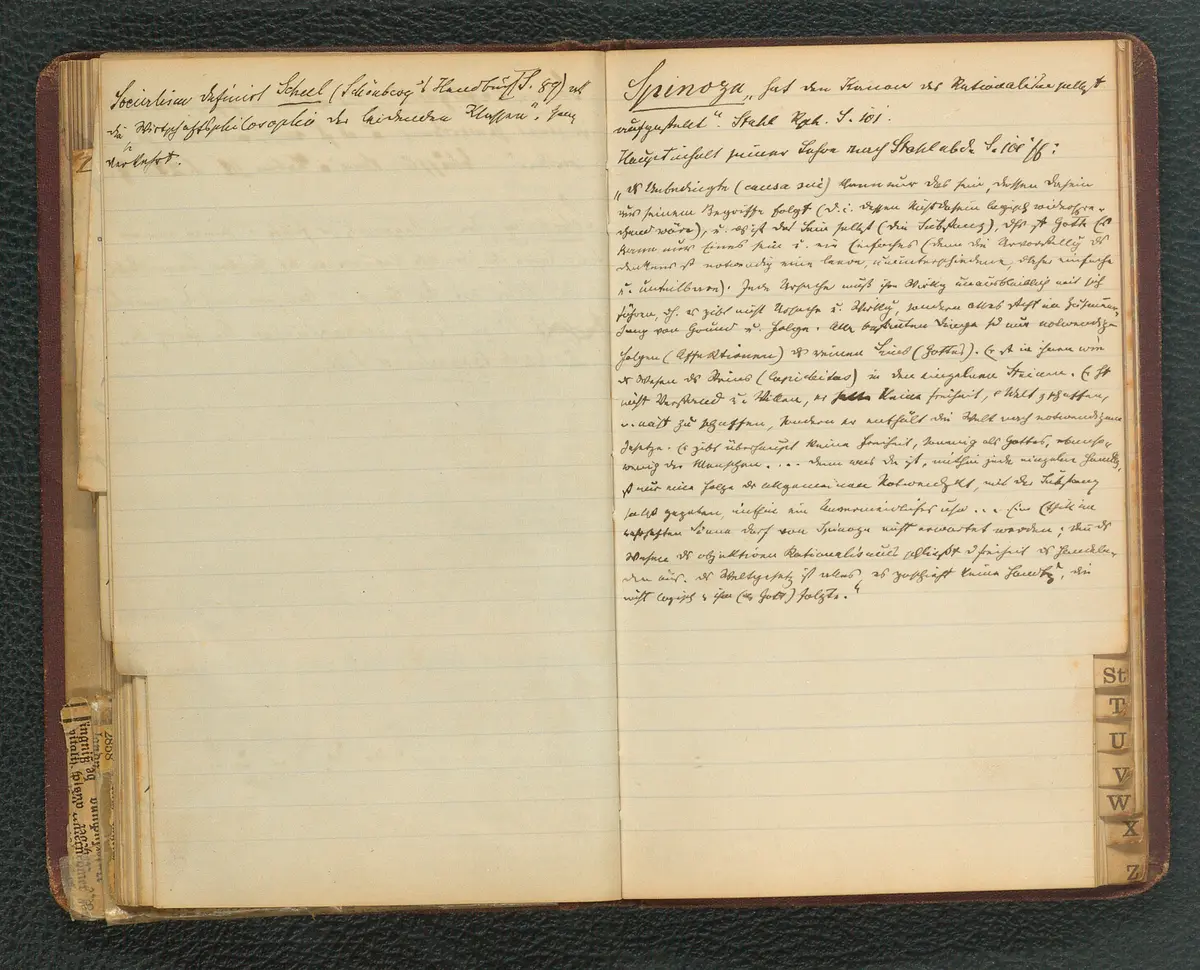 Socialism definirt Scheel (Schönberg's Handbuch S. 89) als
die „Wirtschaftsphilosophie der leidenden Klassen“. Ganz
verkehrt.
Spinoza „hat den Kanon des Rationalism selbst
aufgestellt“. Stahl Rph. S. 101.
Hauptinhalt seiner Lehre nach Stahl ebda S. 101 ff:
„das Unbedingte (causa sui) kann nur das sein, dessen Dasein
aus seinem Begriffe folgt (d. i. dessen Nichtdasein logisch widerspre-
chend wäre), u. es ist das Sein selbst (die Substanz), dhs ist Gott. Es
kann nur Eines sein u. ein Einfaches (denn die Urvorstellg des
Denkens ist notwendig eine leere, ununterschiedene, daher einfache
u. unteilbare). Jede Ursache muß ihre Wirkg unausbleiblich mit sich
führen, dh. es gibt nicht Ursache u. Wirkg, sondern alles steht im Zusammen-
hang von Grund u. Folge. Alle bestimten Dinge sd nur notwendige
Folgen (Affektionen) des reinen Seins (Gottes). Er ist in ihnen wie
das Wesen des Steins (lapideitas) in den einzelnen Steinen. Er ht
nicht Verstand u. Willen, er keine Freiheit, e Welt z schaffen,
o. nicht zu schaffen, sondern er enthält die Welt nach notwendigem
Gesetze. Es gibt überhaupt keine Freiheit, sowenig als Gottes, ebenso-
wenig der Menschen. ... denn was da ist, mithin jede einzelne Handlg,
ist nur eine Folge der allgemeinen Notwendigkt, mit der Substanz
selbst gegeben, mithin ein Unvermeidliches usw ... Ein Ethik im
wahrhaften Sinne darf von Spinoza nicht erwartet werden; denn das
Wesen des objektiven Rationalismus schließt d Freiheit des Handeln-
den aus. Das Weltgesetz ist alles, es geschieht keine Handlg, die
nicht logisch aus ihm (als Gott) folgte.“
St
T
U
V
W
X
Z